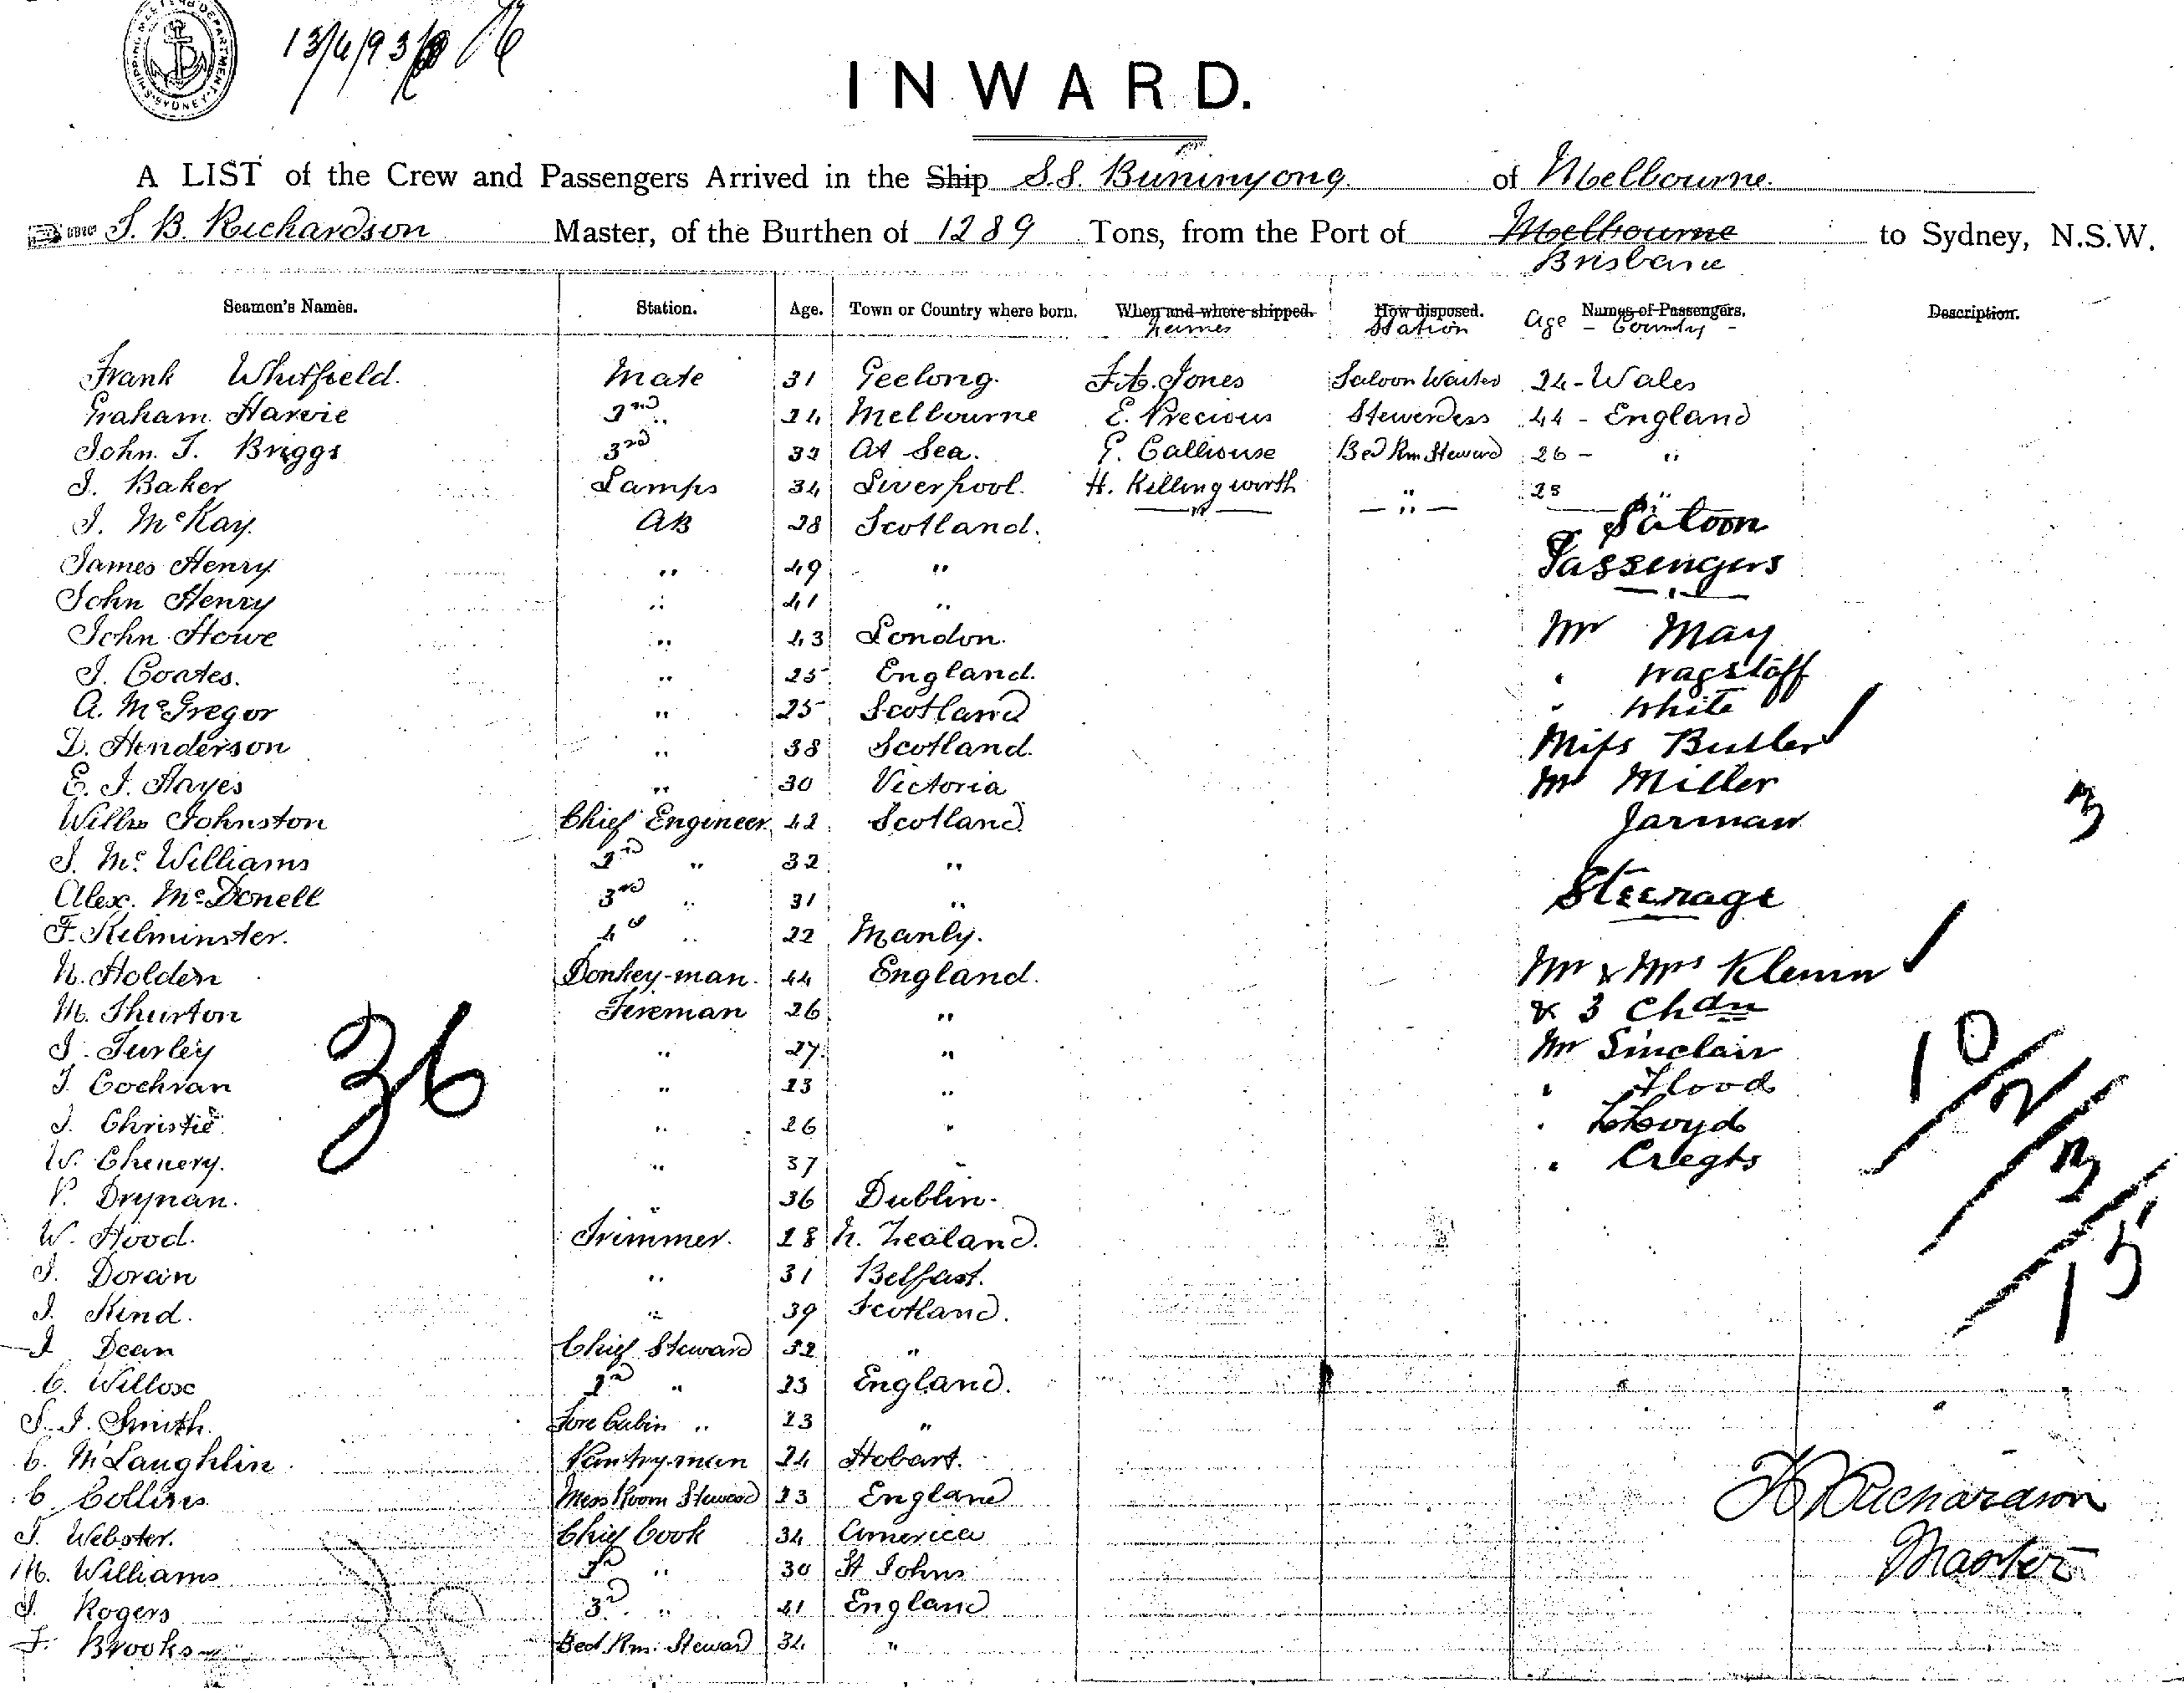 SHIPPING MASTERS DEPARTMENT SYDNEY
13/4/93
INWARD.
A LIST of the Crew and Passengers Arrived in the Ship S.S. Buninyong. of Melbourne.
J. B. Richardson Master, of the Burthen of 1289 Tons, from the Port of Melbourne to Sydney, N.S.W.
Brisbane
Seamen's Names. Station. Age. Town or Country where born. When and where shipped. How disposed. Names of Passengers. Description.
Names Station Age - Country -
Frank Whitfield. Mate 31 Geelong. F. A. Jones Saloon Waiter 24 - Wales
Graham Harvie 2nd " 24 Melbourne E. Precious Stewerdess 44 - England
John. T. Briggs 3rd 32 At Sea. G. Calliouse Bed Rm Steward 26 - "
J. Baker Lamps 34 Liverpool. H. Killingworth " 28 "
J. McKay. AB 28 Scotland. Saloon
James Henry " 49 " Passengers
John Henry " 41 "
John Howe " 43 London. Mr May
J. Coates. " 25 England. " Wagstaff
A. McGregor " 25 Scotland " White
D. Henderson " 38 Scotland. Miss Butler
E. J. Hayes " 30 Victoria Mr Miller
Willm Johnston Chief Engineer 42 Scotland Jarman 3
J. Mc Williams 2nd " 32 "
Alex. McDonell 3rd " 31 " Steerage
F. Kilminster. 4th " 22 Manly.
N. Holden Donkey-man. 44 England. Mr & Mrs Klemm
M. Thurton Fireman 26 " & 3 Chdn
J. Turley " 27 " Mr Sinclair
36
T. Cochran " 23 " " Flood
10/2/3/15
J. Christie " 26 " " Lloyd
W. Chenery. " 37 " "
P. Drynan. " 36 Dublin.
W. Hood. Trimmer. 28 N. Zealand.
J. Doran " 31 Belfast.
J. Kind. " 39 Scotland.
J Dean Chief Steward 32 "
C. Willox 2nd " 23 England.
S. J. Smith. Fore Cabin " 23 "
C. McLaughlin Pantry-man 24 Hobart.
C. Collins Mess Room Steward 23 England
J. Webster. Chief Cook 34 America
M. Williams 2nd " 30 St Johns
J. Rogers 3rd " 41 England
F. Brooks Bed Rm. Steward 34 "
Richardson
Master